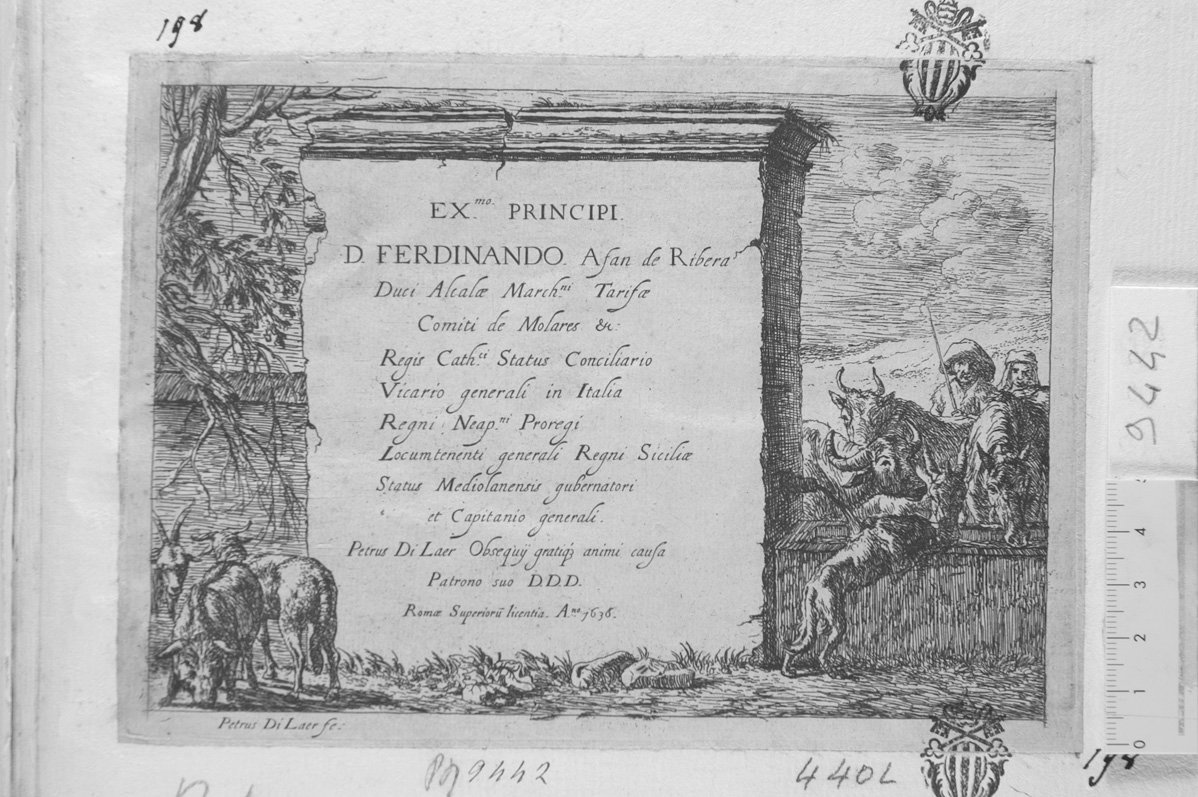 198
EX.mo PRINCIPI.
D. FERDINANDO. Afan de Ribera
Duci Alcalæ March.ni Tarifæ
Comiti de Molares &c:
Regis Cath.ci Status Conciliario
Vicario generali in Italia
Regni Neap.ni Proregi
Locumtenenti generali Regni Siciliæ
Status Mediolanensis gubernatori
et Capitanio generali.
Petrus Di Laer Obsequÿ gratiq́ animi causa
Patrono suo D.D.D.
Romæ Superiorū licentia. A.no 1636.
Petrus Di Laer fe:
9442
4
3
2
1
0
9442
440L
198